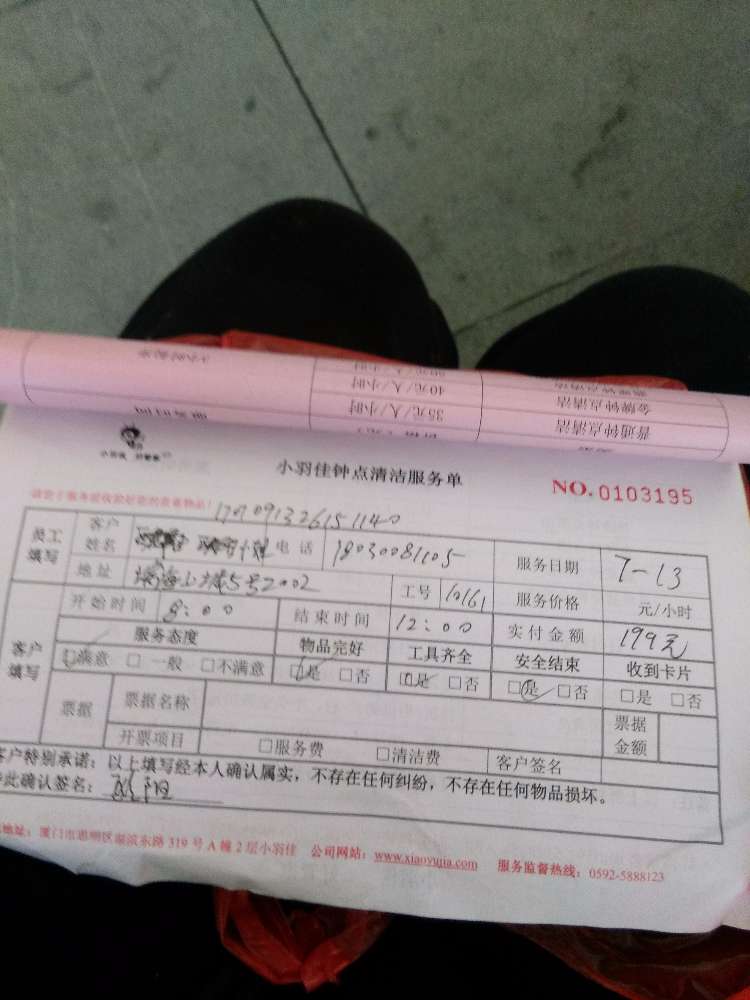 40元/人/小时 金牌钟点清洁
35元/人/小时 普通钟点清洁
小羽佳 好管家
小羽佳钟点清洁服务单
NO.0103195
员工填写 客户姓名 电话 18030081105 服务日期 7-13
地址 5号2002 工号 10161 服务价格 元/小时
客户填写 开始时间 8:00 结束时间 12:00 实付金额 199元
服务态度 物品完好 工具齐全 安全结束 收到卡片
□满意 □一般 □不满意 □是 □否 □是 □否 □是 □否 □是 □否
票据 票据名称 票据金额
开票项目 □服务费 □清洁费 客户签名
客户特别承诺：以上填写经本人确认属实，不存在任何纠纷，不存在任何物品损坏。
此确认签名：
地址：厦门市思明区湖滨东路319号A幢2层小羽佳 公司网站：www.xiaoyujia.com 服务监督热线：0592-5888123